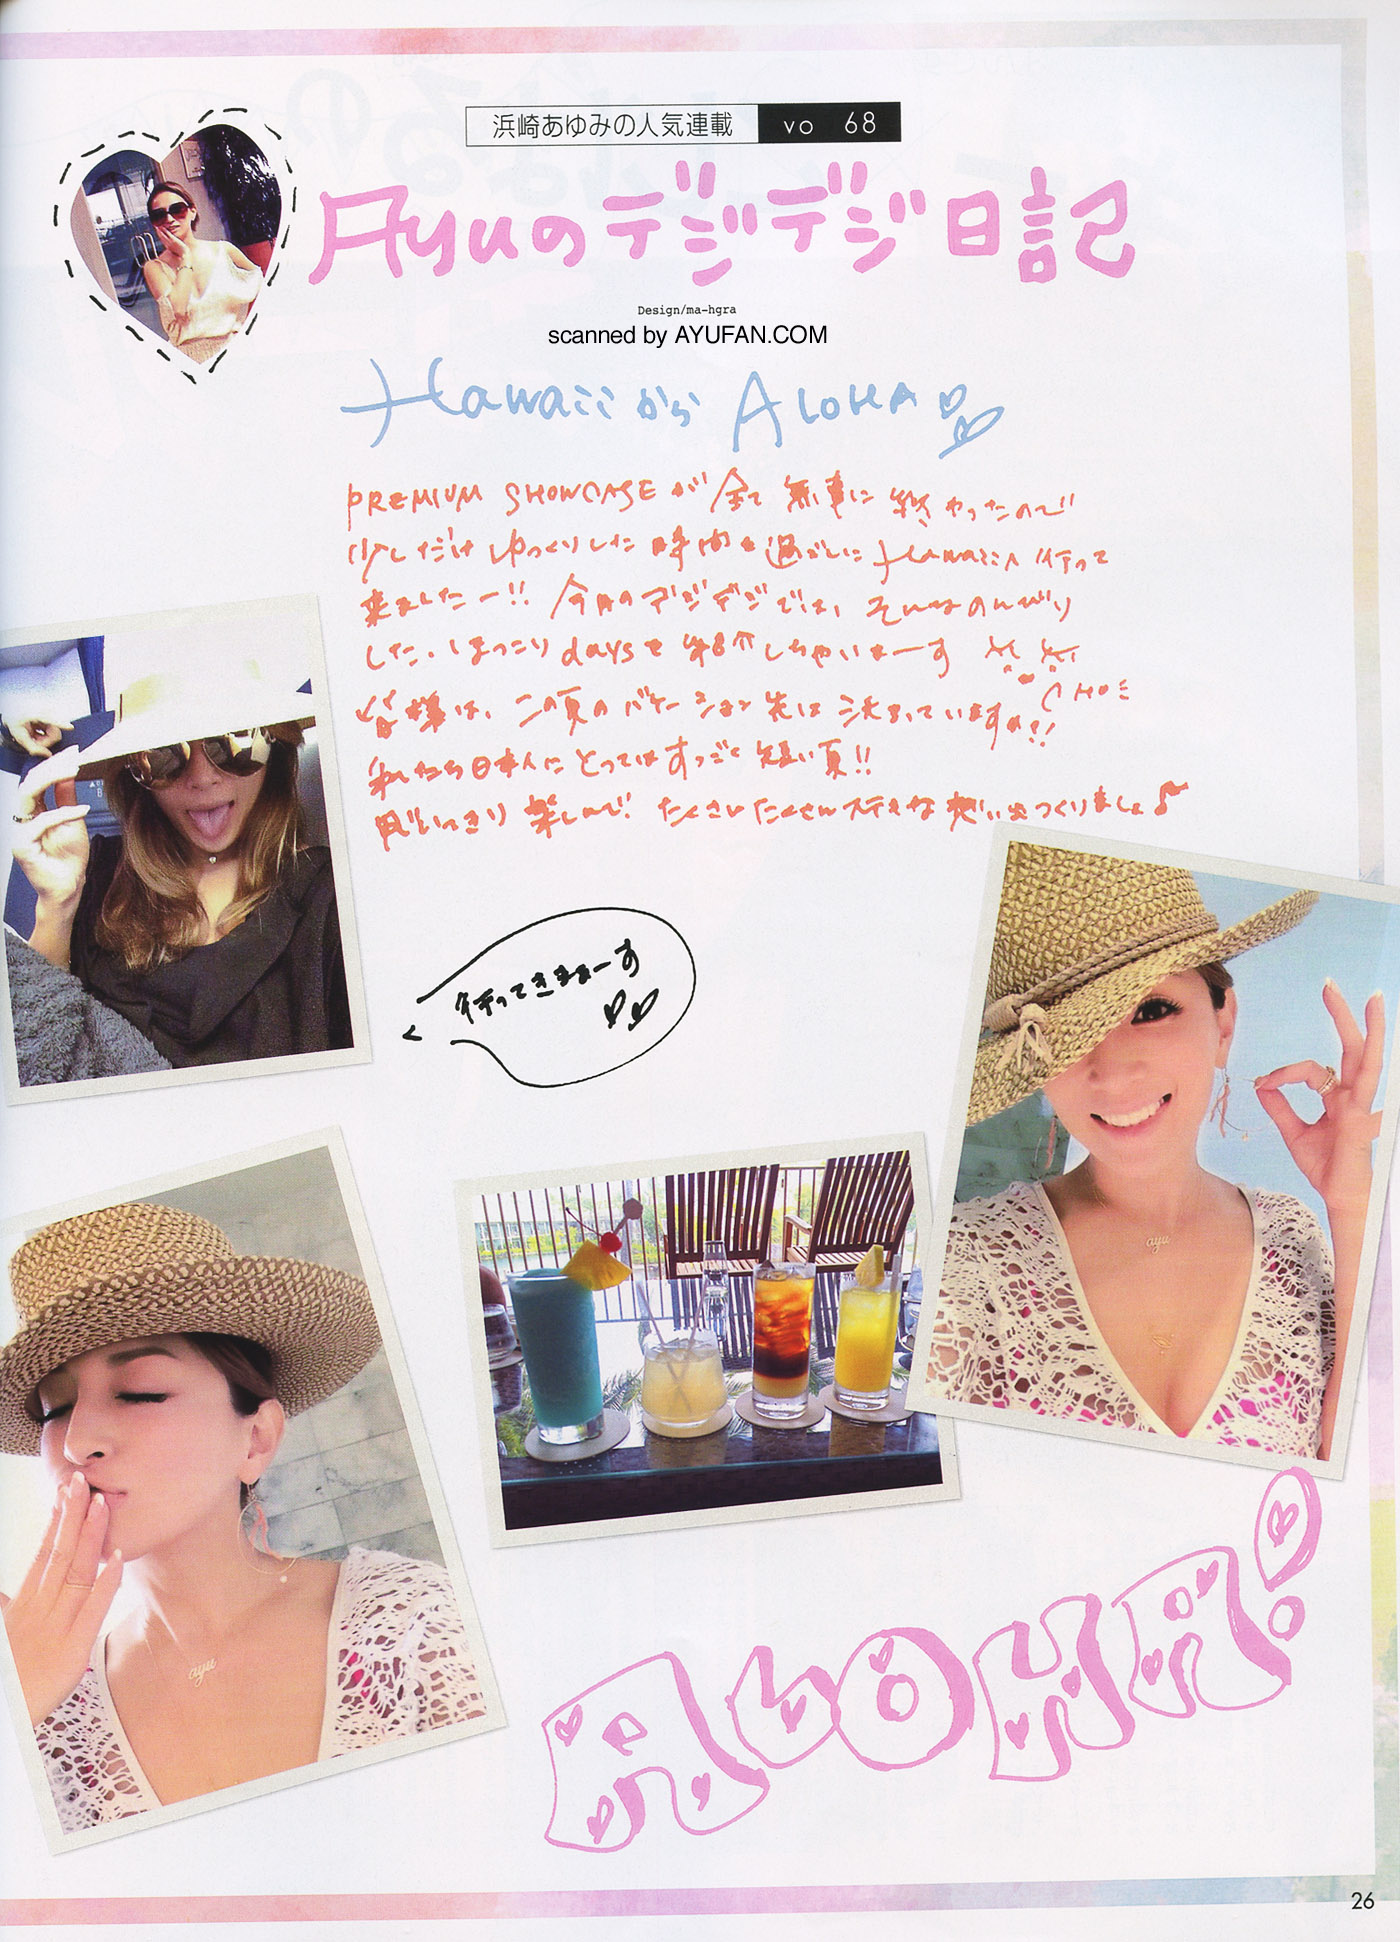 浜崎あゆみの人気連載 vo 68
Ayuのデジデジ日記
Design/ma-hgra
scanned by AYUFAN.COM
Hawaiiから ALOHA
PREMIUM SHOWCASEが全て無事に終わったので
少しだけゆっくりした時間を過ごしにHawaiiへ行って
来ましたー!! 今月のデジデジでは、そんなのんびり
した、ほっこりdaysを紹介しちゃいまーす
CHU
皆様は、この夏のバケーション先は決まっていますか!?
私たち日本人にとってはすっごく短い夏!!
思いっきり楽しんで! たくさんたくさんステキな想い出つくりましょ♪
行ってきまぁーす
ayu
ayu
ALOHA!
26